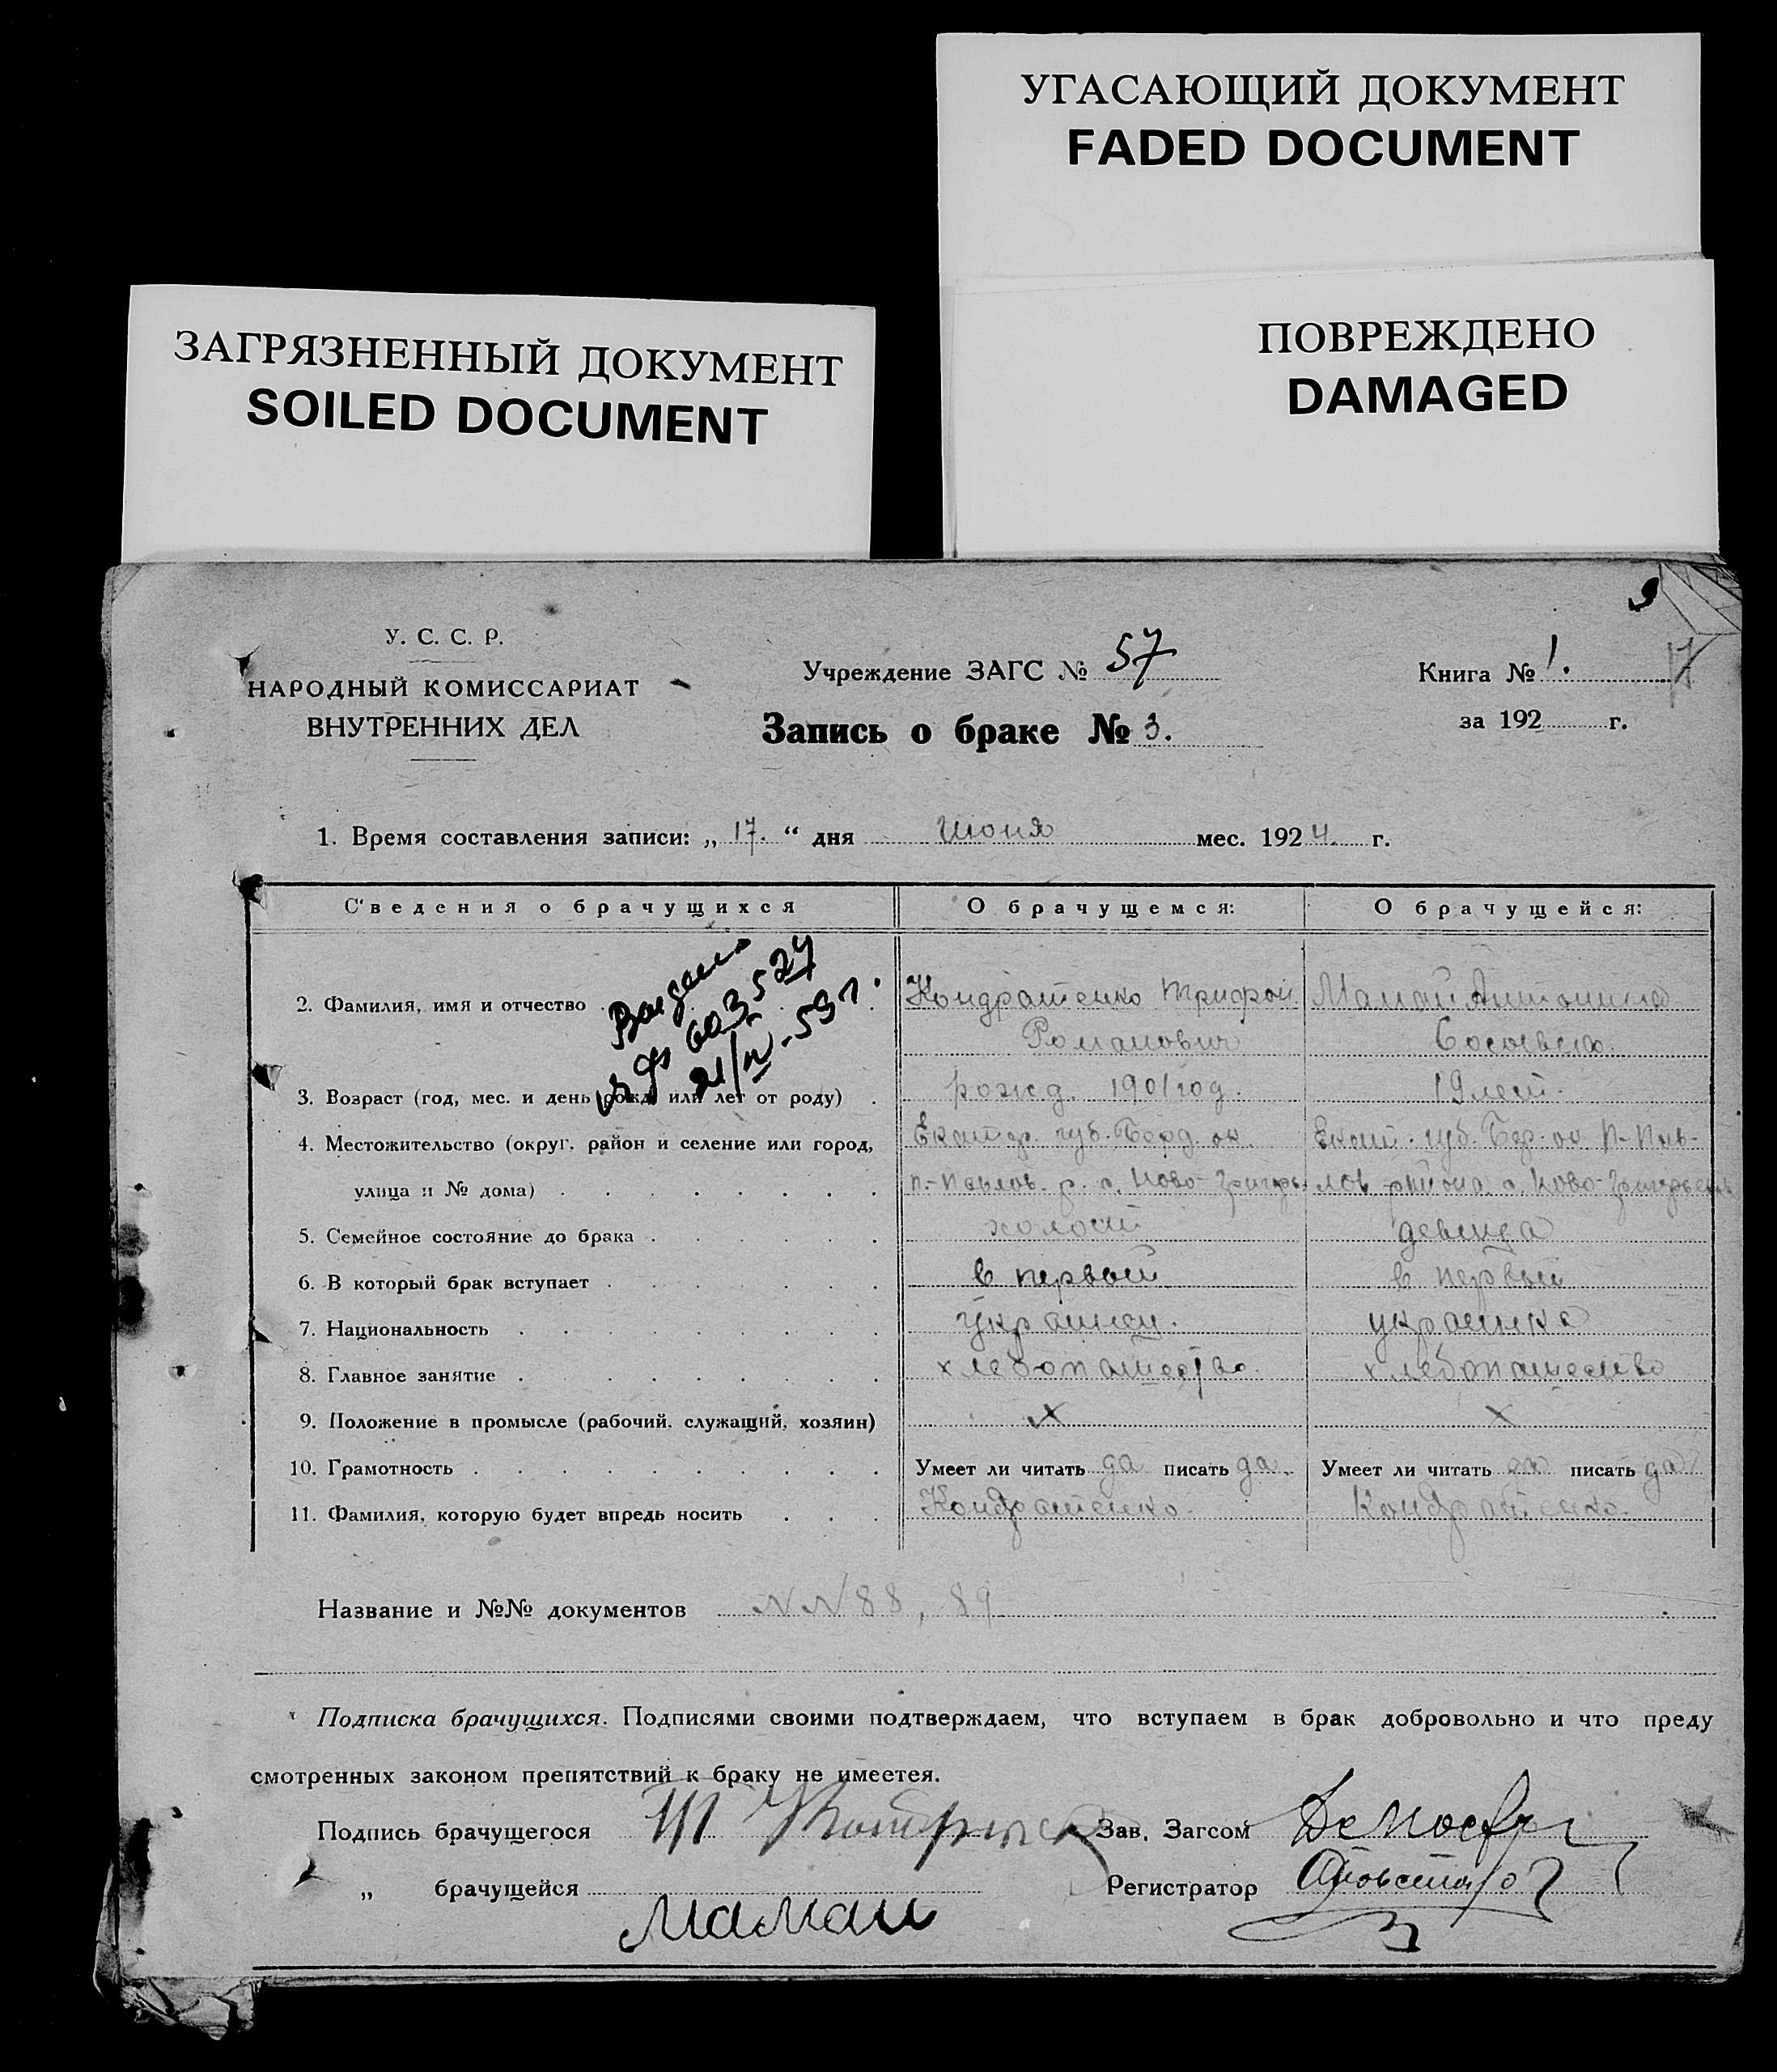 УГАСАЮЩИЙ ДОКУМЕНТ
FADED DOCUMENT
ЗАГРЯЗНЕННЫЙ ДОКУМЕНТ
SOILED DOCUMENT
ПОВРЕЖДЕНО
DAMAGED
У. С. С. Р.
НАРОДНЫЙ КОМИССАРИАТ
ВНУТРЕННИХ ДЕЛ
Учреждение ЗАГС № 57
Запись о браке № 3.
Книга № 1.
за 192 г.
1. Время составления записи: „ 17. “ дня июня мес. 1924. г.
Сведения о брачущихся О брачущемся: О брачущейся:
2. Фамилия, имя и отчество Кондратенко Трифон Мамай Антонина
Романович
3. Возраст (год, мес. и день рожд. или лет от роду) рожд. 1901 год. 19 лет.
4. Местожительство (округ, район и селение или город, Екатер. губ. Берд. ок. Екат. губ. Бер. ок. П-Пав-
улица и № дома) П.-Павлов. р. с. Ново-Григорь. лов района с. Ново-Григорьевка
5. Семейное состояние до брака холост девица
6. В который брак вступает в первый в первый
7. Национальность украинец. украинка
8. Главное занятие хлебопашество. хлебопашество
9. Положение в промысле (рабочий, служащий, хозяин) х х
10. Грамотность Умеет ли читать да писать да. Умеет ли читать да писать да
11. Фамилия, которую будет впредь носить Кондратенко. Кондратенко.
Название и №№ документов NN 88, 89
Подписка брачущихся. Подписями своими подтверждаем, что вступаем в брак добровольно и что преду
смотренных законом препятствий к браку не имеется.
Подпись брачущегося Зав. Загсом
„ брачущейся Регистратор
Мамаи